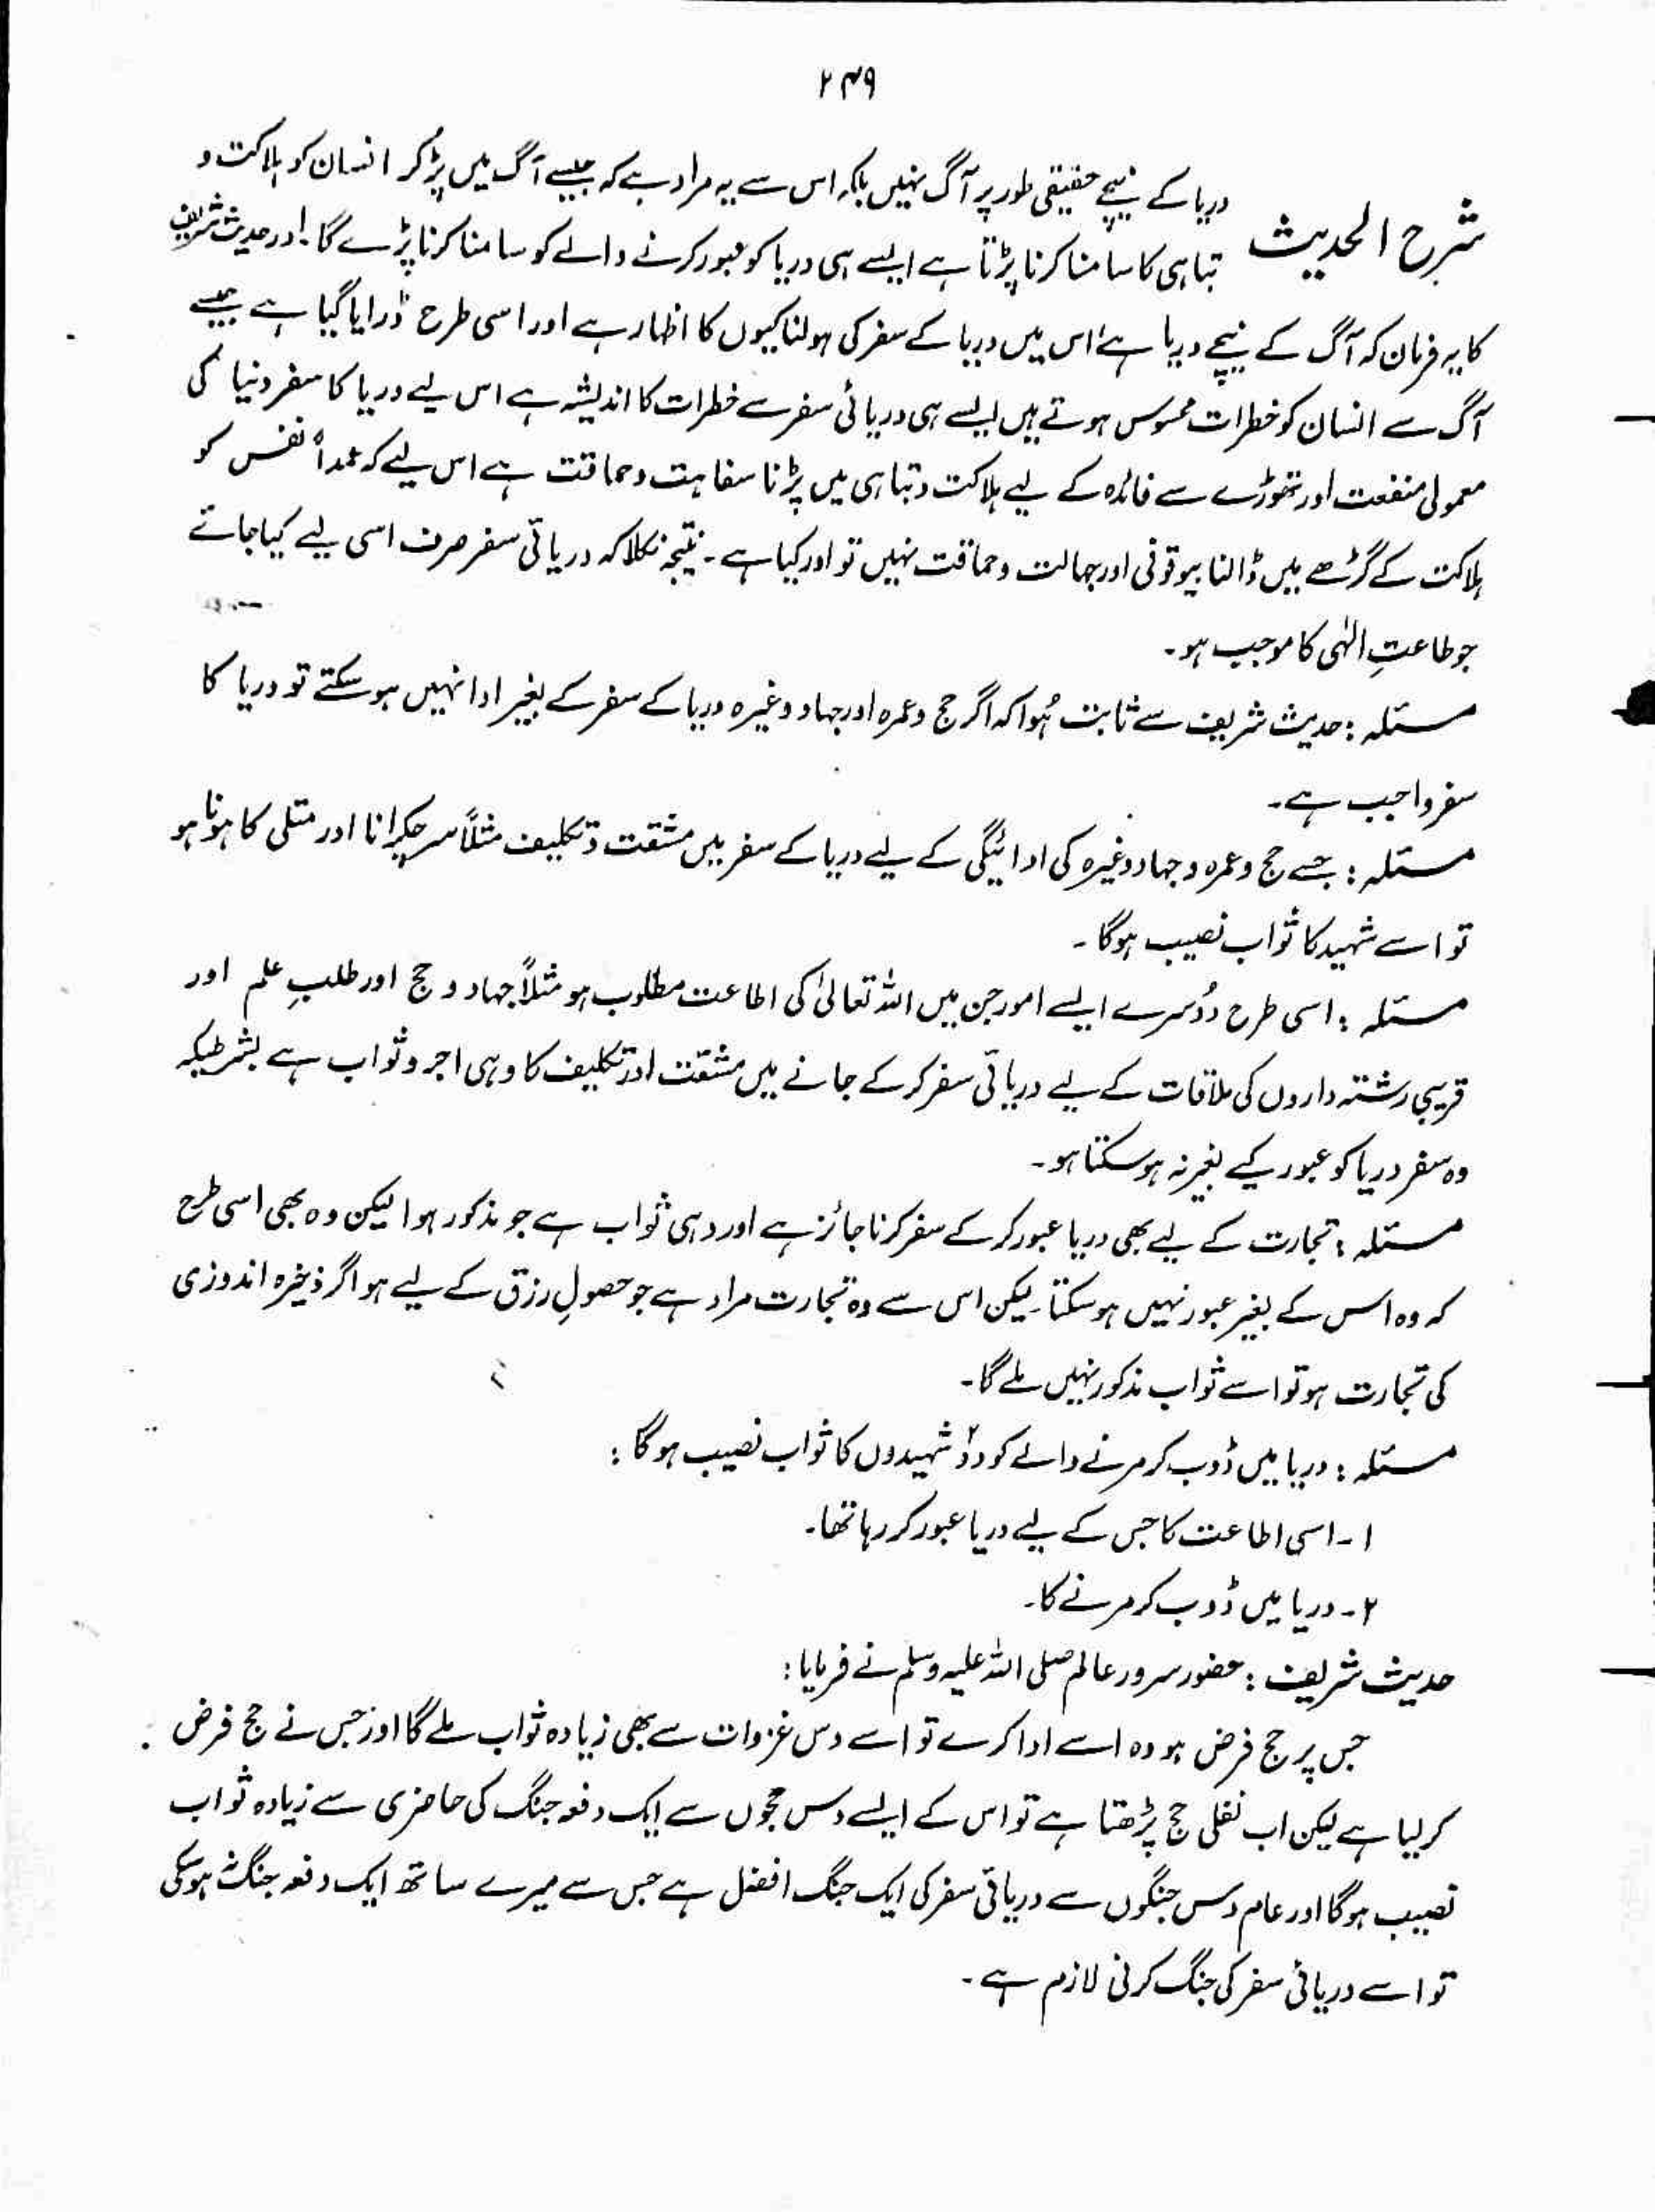 ۲۴۹
شرح الحدیث دریا کے نیچے حقیقی طور پر آگ نہیں بلکہ اس سے یہ مراد ہے کہ جیسے آگ میں پڑ کر انسان کو ہلاکت و
تباہی کا سامنا کرنا پڑتا ہے ایسے ہی دریا کو عبور کرنے والے کو سامنا کرنا پڑے گا۔ اور حدیث شریف
کا یہ فرمان کہ آگ کے نیچے دریا ہے، اس میں دریا کے سفر کی ہولناکیوں کا اظہار ہے اور اسی طرح ڈرایا گیا ہے جیسے
آگ سے انسان کو خطرات محسوس ہوتے ہیں ایسے ہی دریائی سفر سے خطرات کا اندیشہ ہے اس لیے دریا کا سفر دنیا کی
معمولی منفعت اور تھوڑے سے فائدہ کے لیے ہلاکت و تباہی میں پڑنا سفاہت و حماقت ہے اس لیے کہ عمداً نفس کو
ہلاکت کے گڑھے میں ڈالنا بیوقوفی اور جہالت و حماقت نہیں تو اور کیا ہے۔ نتیجہ نکلا کہ دریائی سفر صرف اسی لیے کیا جائے
جو طاعتِ الٰہی کا موجب ہو۔
مسئلہ : حدیث شریف سے ثابت ہُوا کہ اگر حج و عمرہ اور جہاد وغیرہ دریا کے سفر کے بغیر ادا نہیں ہو سکتے تو دریا کا
سفر واجب ہے۔
مسئلہ : جسے حج و عمرہ و جہاد وغیرہ کی ادائیگی کے لیے دریا کے سفر میں مشقت و تکلیف مثلاً سر چکرانا اور متلی کا ہونا ہو
تو اسے شہید کا ثواب نصیب ہوگا۔
مسئلہ : اسی طرح دُوسرے ایسے امور جن میں اللہ تعالیٰ کی اطاعت مطلوب ہو مثلاً جہاد و حج اور طلبِ علم اور
قریبی رشتہ داروں کی ملاقات کے لیے دریائی سفر کر کے جانے میں مشقت اور تکلیف کا وہی اجر و ثواب ہے بشرطیکہ
وہ سفر دریا کو عبور کیے بغیر نہ ہو سکتا ہو۔
مسئلہ : تجارت کے لیے بھی دریا عبور کر کے سفر کرنا جائز ہے اور وہی ثواب ہے جو مذکور ہوا لیکن وہ بھی اسی طرح
کہ وہ اس کے بغیر عبور نہیں ہو سکتا۔ لیکن اس سے وہ تجارت مراد ہے جو حصولِ رزق کے لیے ہو اگر ذخیرہ اندوزی
کی تجارت ہو تو اسے ثواب مذکور نہیں ملے گا۔
مسئلہ : دریا میں ڈوب کر مرنے والے کو دو شہیدوں کا ثواب نصیب ہوگا :
۱ ۔ اسی اطاعت کا جس کے لیے دریا عبور کر رہا تھا۔
۲ ۔ دریا میں ڈوب کر مرنے کا۔
حدیث شریف : حضور سرور عالم صلی اللہ علیہ وسلم نے فرمایا :
جس پر حج فرض ہو وہ اسے ادا کرے تو اسے دس غزوات سے بھی زیادہ ثواب ملے گا اور جس نے حج فرض
کر لیا ہے لیکن اب نفلی حج پڑھتا ہے تو اس کے ایسے دس حجوں سے ایک دفعہ جنگ کی حاضری سے زیادہ ثواب
نصیب ہوگا اور عام دس جنگوں سے دریائی سفر کی ایک جنگ افضل ہے جس سے میرے ساتھ ایک دفعہ جنگ نہ ہو سکی
تو اسے دریائی سفر کی جنگ کرنی لازم ہے۔